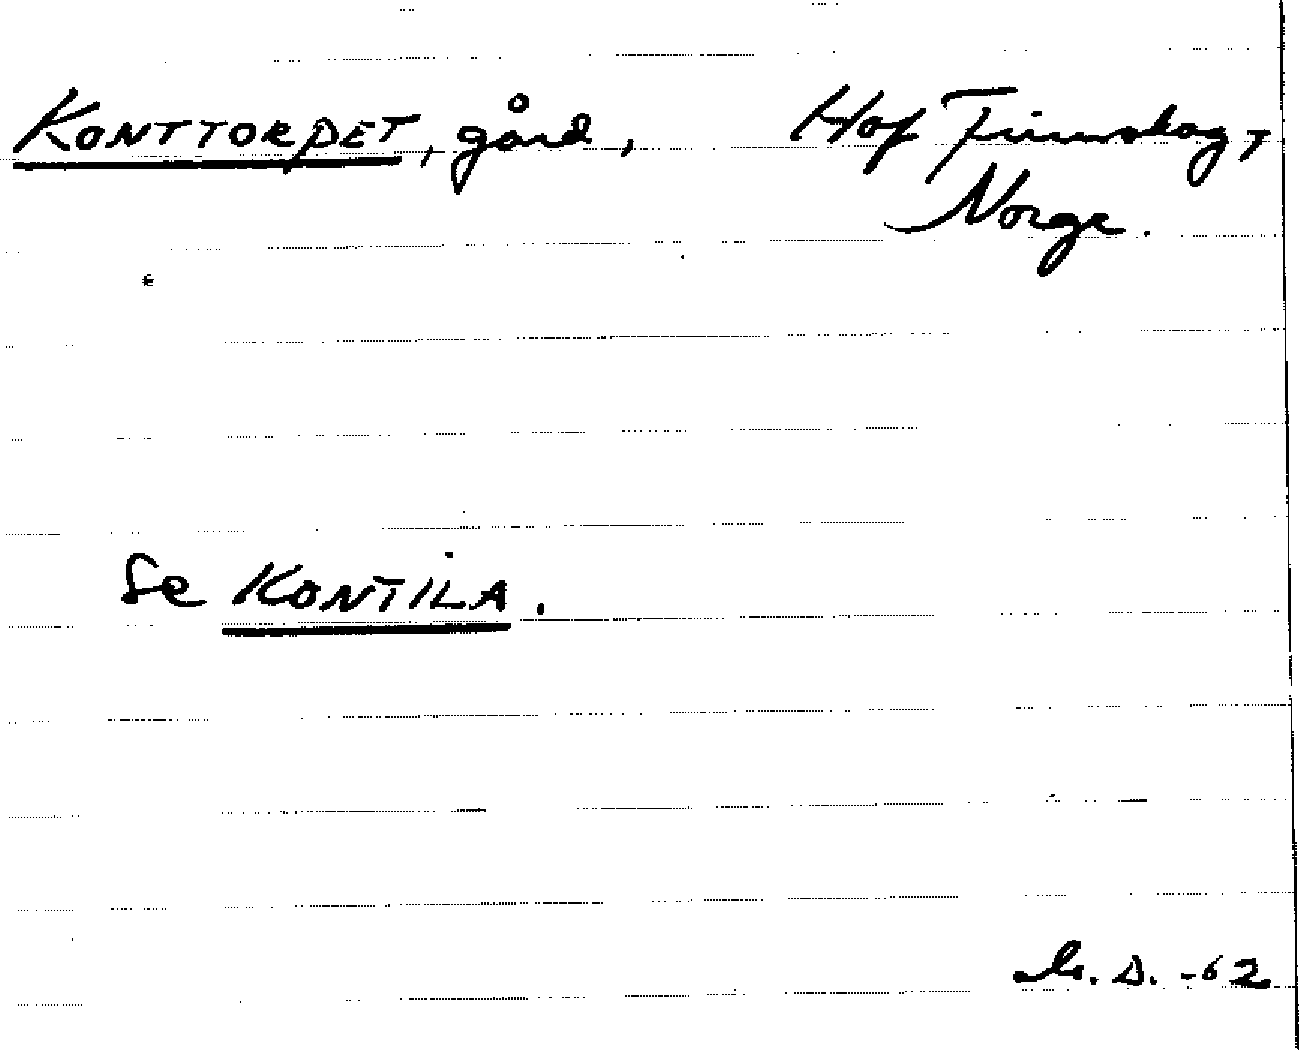 KONTTORPET, gård, Hof Finnskog,
Norge.
Se KONTILA.
M. D. -62